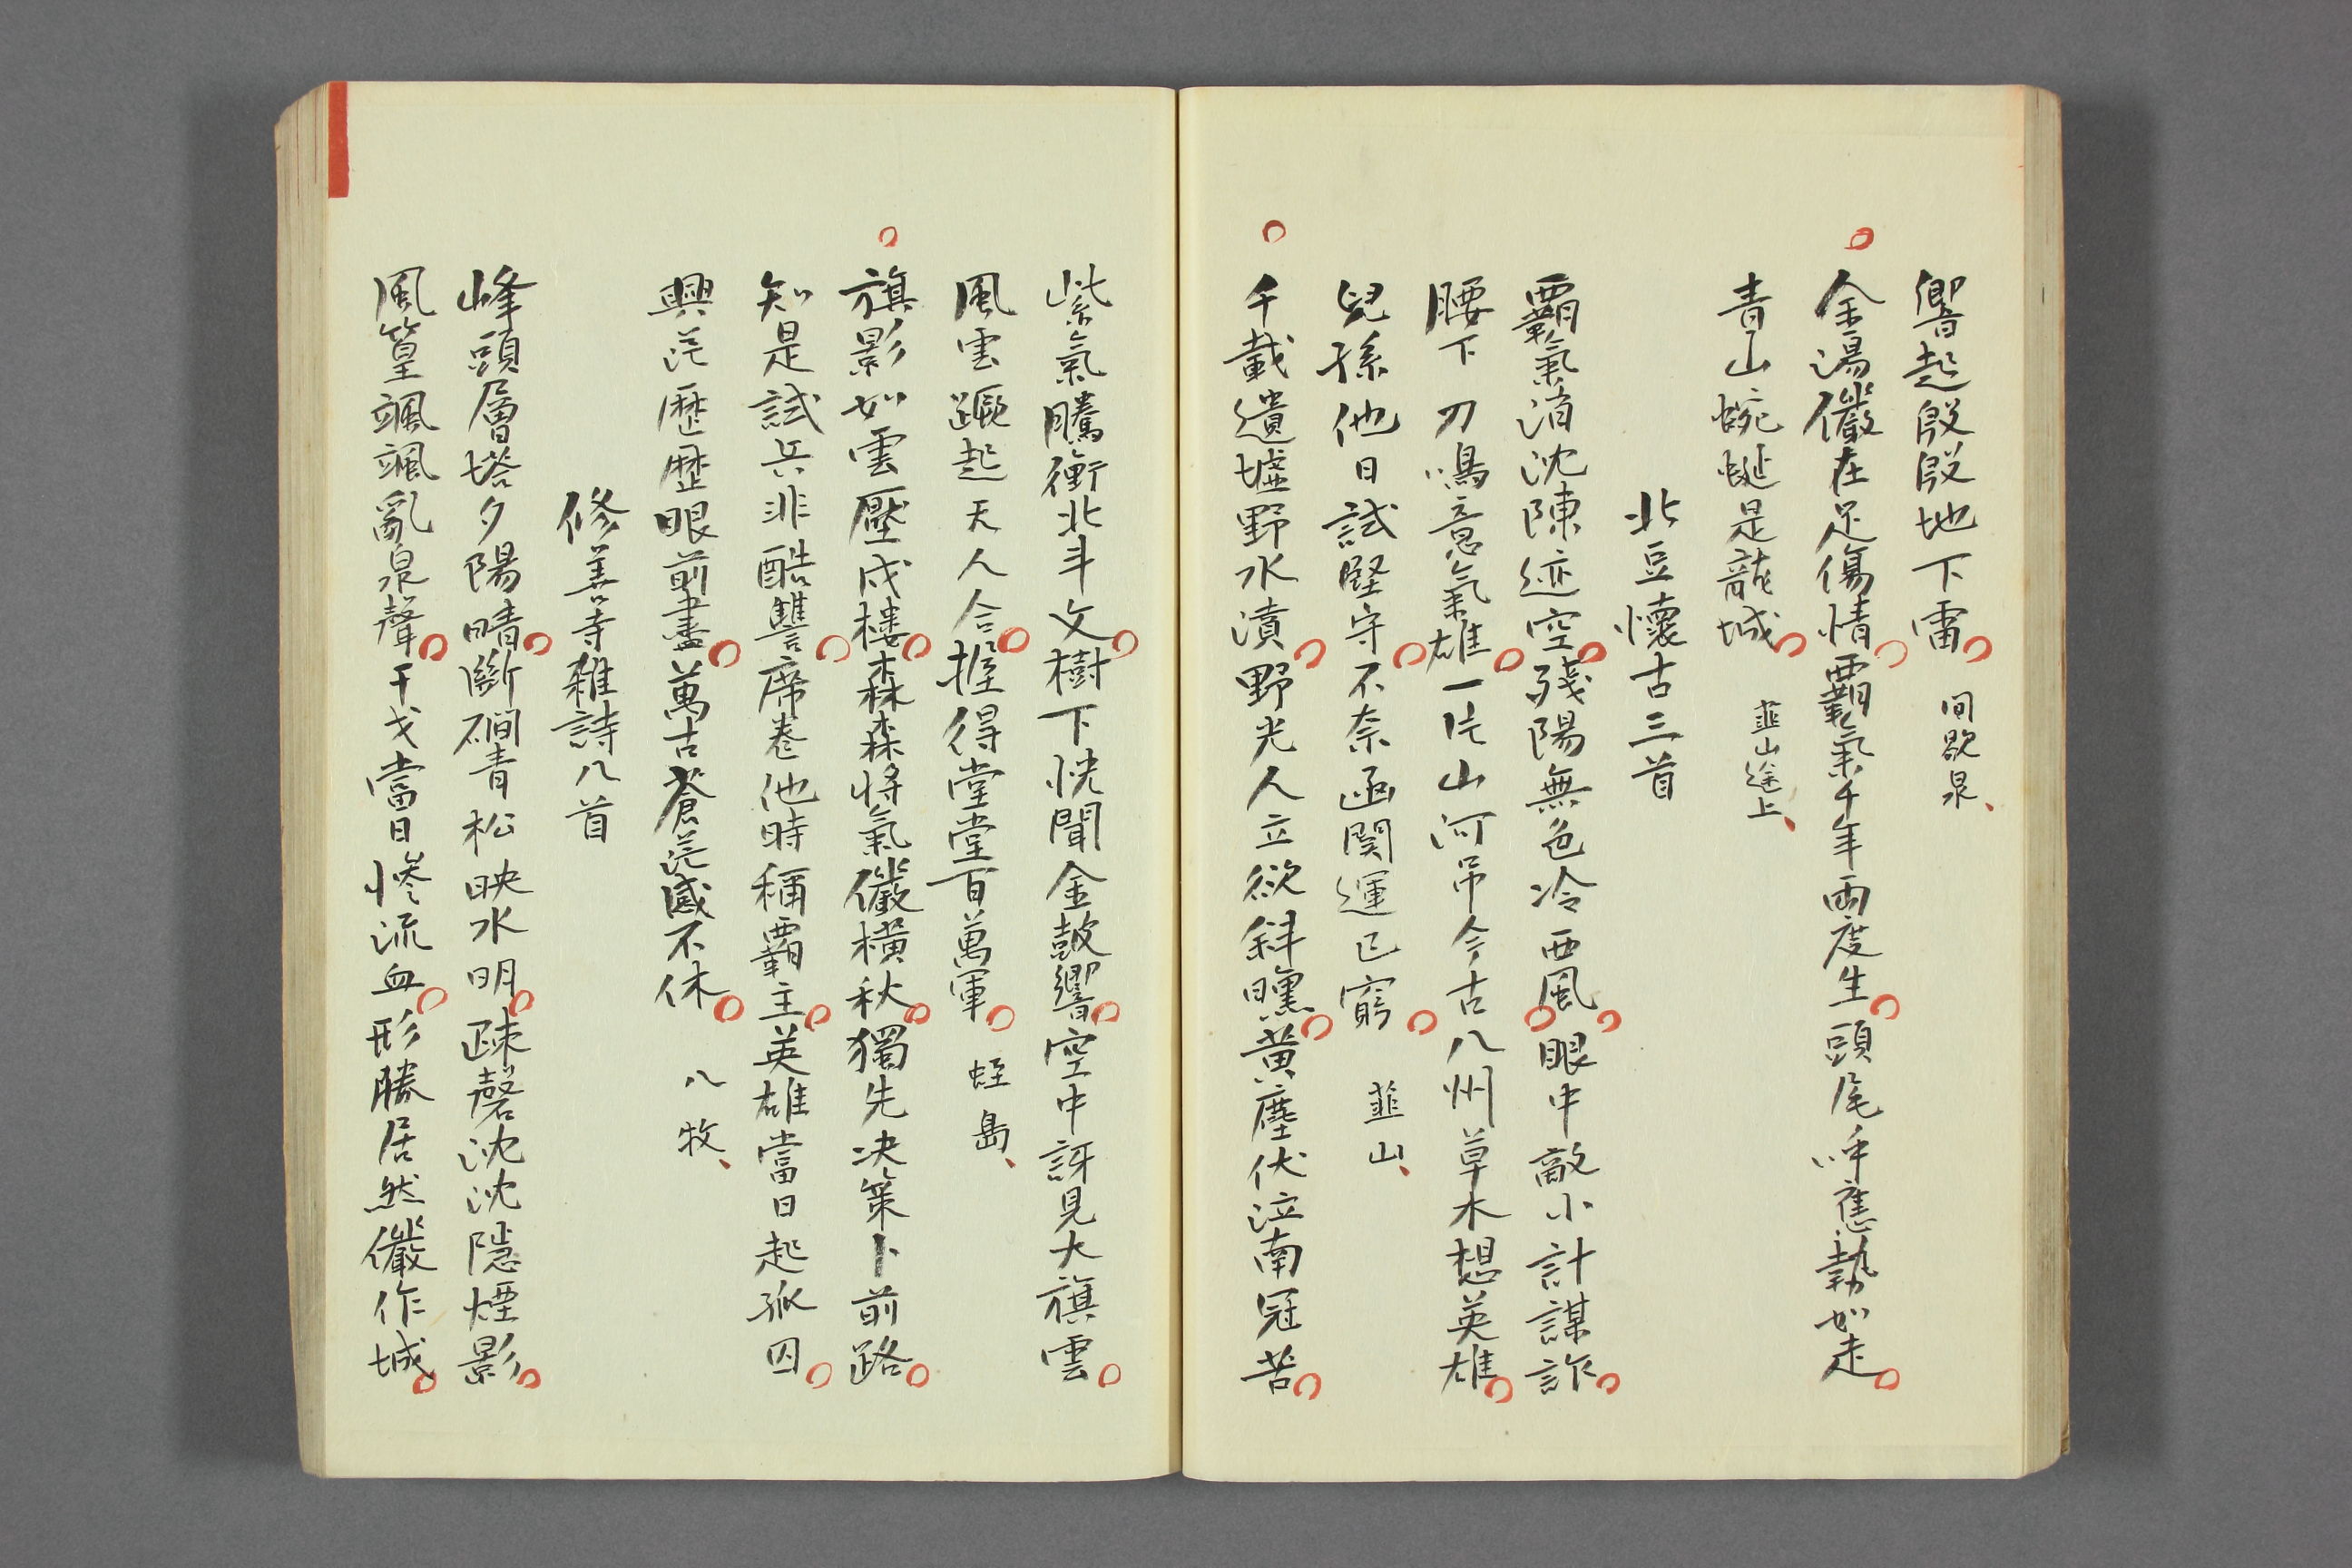 響起殷殷地下雷　間歇泉、
金湯儼在足傷情覇氣千年両度生頭尾呼應勢如走
青山蜿蜒是龍城　韮山途上、
北豆懷古三首
覇氣消沈陳迹空殘陽無色冷西風眼中敵小計謀詐
腰下刀鳴意氣雄一片山河吊今古八州草木想英雄
兒孫他日試堅守不奈函関運已窮　韮山、
千載遺墟野水濆野光人立欲斜曛黄塵伏泣南冠苦
紫氣騰衝北斗文樹下恍聞金鼓響空中訝見大旗雲
風雲蹶起天人合握得堂堂百萬軍　蛭島、
旗影如雲壓戍樓森森將氣儼横秋獨先決策卜前路
知是試兵非酷讐席巻他時稱覇主英雄當日起孤囚
興茫歴歴眼前盡萬古蒼茫感不休　八牧、
修善寺雜詩八首
峰頭層塔夕陽晴斷磵青松映水明疎磬沈沈隱煙影
風篁颯颯亂泉聲干戈當日惨流血形勝居然儼作城